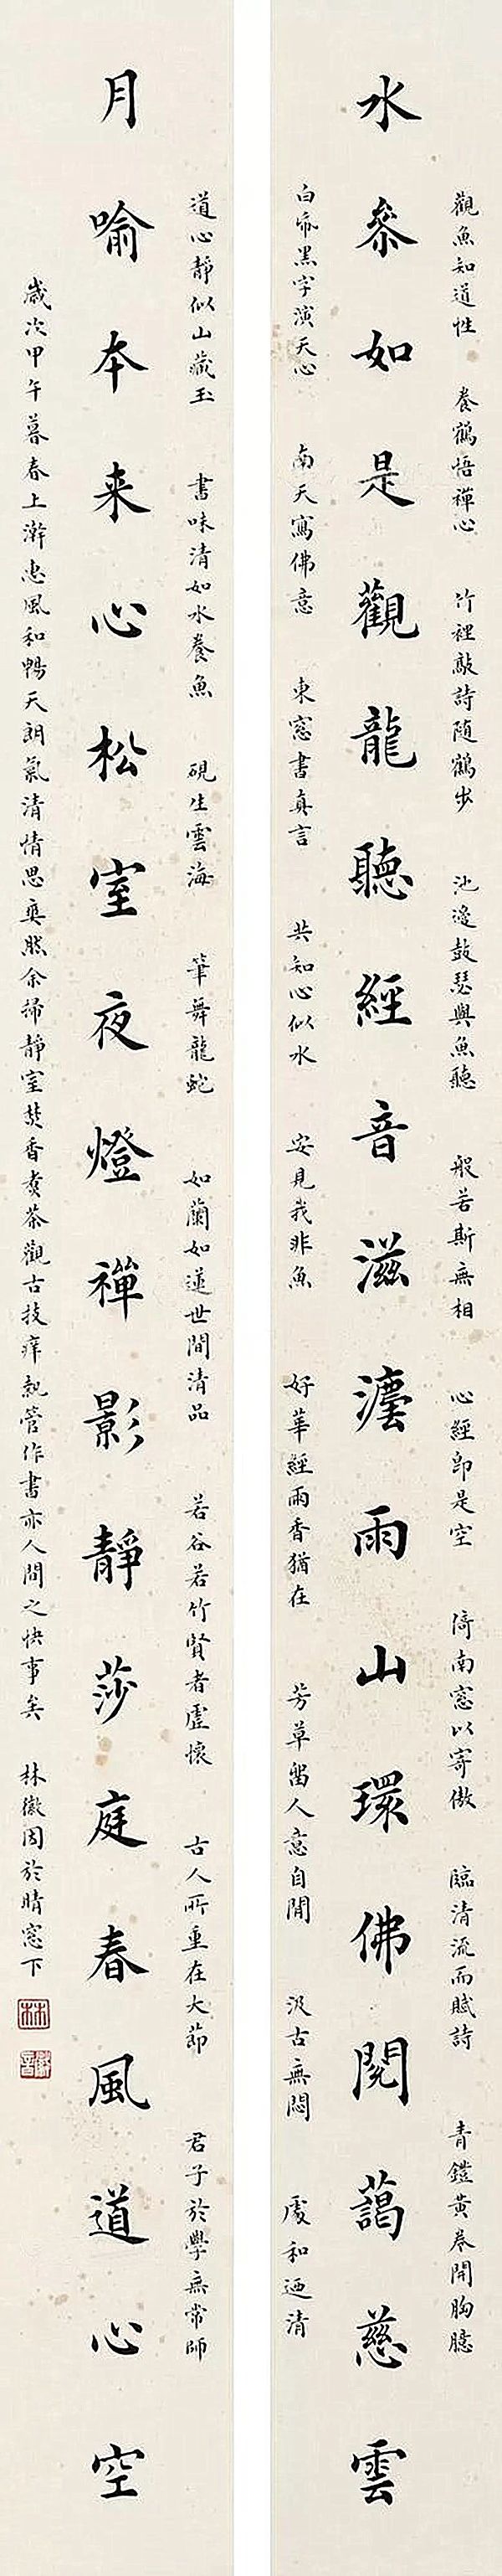 觀魚知道性 養鶴悟禪心 竹裡敲詩随鶴步 池邊鼓瑟與魚聽 般若斯無相 心經即是空 倚南窓以寄傲 臨清流而賦詩 青鐙黃卷開胸臆
水參如是觀龍聽經音滋瀍雨山環佛閣藹慈雲
白帋黑字演天心 南天寫佛意 東窓書真言 共知心似水 安見我非魚 好華經雨香猶在 芳草留人意自閒 汲古無悶 處和迺清
道心靜似山藏玉 書味清如水養魚 硯生雲海 筆舞龍蛇 如蘭如蓮世間清品 若谷若竹賢者虛懷 古人所重在大節 君子於學無常師
月喻本来心松室夜燈禪影靜莎庭春風道心空
歲次甲午暮春上澣惠風和暢天朗氣清情思奭然余掃靜室焚香煑茶觀古技痒執管作書亦人間之快事矣 林徽因於晴窓下